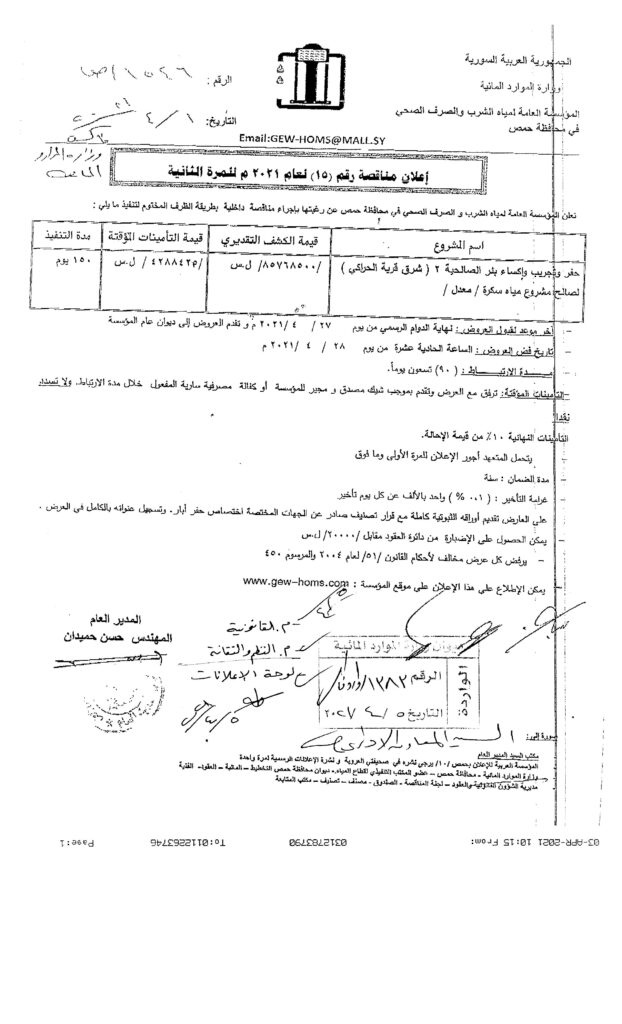 الجمهورية العربية السورية
وزارة الموارد المائية
المؤسسة العامة لمياه الشرب والصرف الصحي
في محافظة حمص
الرقم :
التاريخ: ١ / ٤ /
Email:GEW-HOMS@MALL.SY
وزارة الموارد
المائية
إعلان مناقصة رقم (١٥) لعام ٢٠٢١ م للمرة الثانية
تعلن المؤسسة العامة لمياه الشرب و الصرف الصحي في محافظة حمص عن رغبتها بإجراء مناقصة داخلية بطريقة الظرف المختوم لتنفيذ ما يلي :
اسم المشروع
قيمة الكشف التقديري
قيمة التأمينات المؤقتة
مدة التنفيذ
حفر وتجريب وإكساء بئر الصالحية ٢ ( شرق قرية الحراكي )
لصالح مشروع مياه سكرة / معدل /
/٨٥٧٦٨٥٠٠/ ل.س
/٤٢٨٨٤٢٥/ ل.س
١٥٠ يوم
– آخر موعد لقبول العروض : نهاية الدوام الرسمي من يوم ٢٧ / ٤ / ٢٠٢١ م و تقدم العروض إلى ديوان عام المؤسسة
– تاريخ فض العروض : الساعة الحادية عشرة من يوم ٢٨ / ٤ / ٢٠٢١ م
– مدة الارتباط : ( ٩٠ ) تسعون يوماً.
– التأمينات المؤقتة: ترفق مع العرض وتقدم بموجب شيك مصدق و مجير للمؤسسة أو كفالة مصرفية سارية المفعول خلال مدة الارتباط. ولا تسدد
نقدا
التأمينات النهائية ١٠% من قيمة الإحالة.
– يتحمل المتعهد أجور الإعلان للمرة الأولى وما فوق
مدة الضمان : سنة
– غرامة التأخير : ( ٠.١ % ) واحد بالألف عن كل يوم تأخير
على العارض تقديم أوراقه الثبوتية كاملة مع قرار تصنيف صادر عن الجهات المختصة اختصاص حفر آبار. وتسجيل عنوانه بالكامل في العرض .
– يمكن الحصول على الإضبارة من دائرة العقود مقابل /٢٠٠٠٠/ ل.س
– يرفض كل عرض مخالف لأحكام القانون /٥١/ لعام ٢٠٠٤ والمرسوم ٤٥٠
– يمكن الإطلاع على هذا الإعلان على موقع المؤسسة : www.gew-homs.com
المدير العام
المهندس حسن حميدان
م. القانونية
م. النظم والتقانة
لوحة الإعلانات
ديوان وزارة الموارد المائية
الواردة:
الرقم ١٣٨٢
التاريخ ٥
السيد المعاون الإداري
صورة إلى:
مكتب السيد المدير العام
المؤسسة العربية للإعلان بحمص /١٠/ يرجى نشره في صحيفتي العروبة و نشرة الإعلانات الرسمية لمرة واحدة
وزارة الموارد المائية - محافظة حمص – عضو المكتب التنفيذي لقطاع المياه- ديوان محافظة حمص التخطيط – المالية – العقود- الفنية
مديرية الشؤون القانونية والعقود – لجنة المناقصة - الصندوق - مصنف – تصنيف – مكتب المتابعة
03-APR-2021 10:15 From: 0312763790 To:0112263746 Page:1